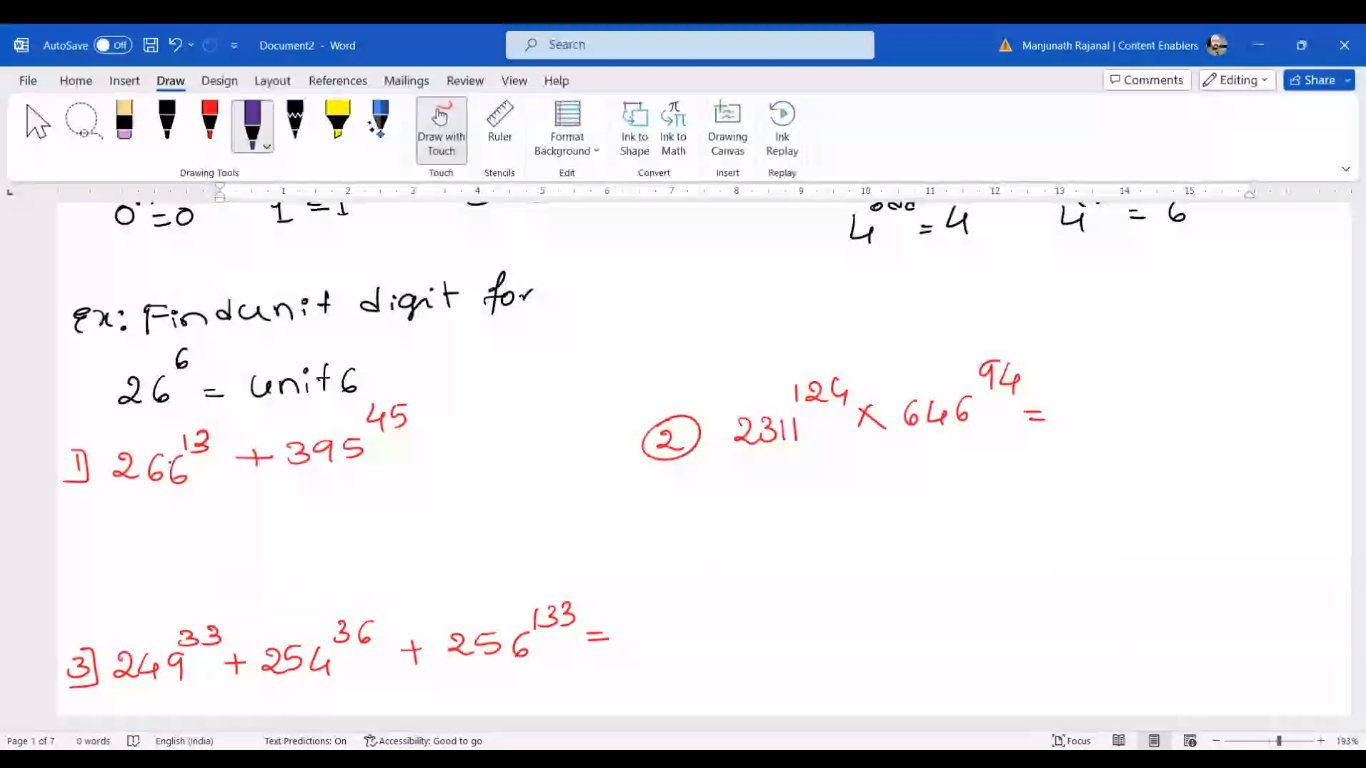 AutoSave Off Document2 - Word Search Manjunath Rajanal | Content Enablers
File Home Insert Draw Design Layout References Mailings Review View Help Comments Editing Share
Draw with Touch Ruler Format Background Ink to Shape Ink to Math Drawing Canvas Ink Replay
Drawing Tools Touch Stencils Edit Convert Insert Replay
1 2 3 4 5 6 7 8 9 10 11 12 13 14 15
0 =0 1 =1 4^odd = 4 4 = 6
Ex: Find unit digit for
26^6 = unit 6
1] 266^13 + 395^45
2 2311^124 × 646^94 =
3] 249^33 + 254^36 + 256^133 =
Page 1 of 7 0 words English (India) Text Predictions: On Accessibility: Good to go Focus 193%